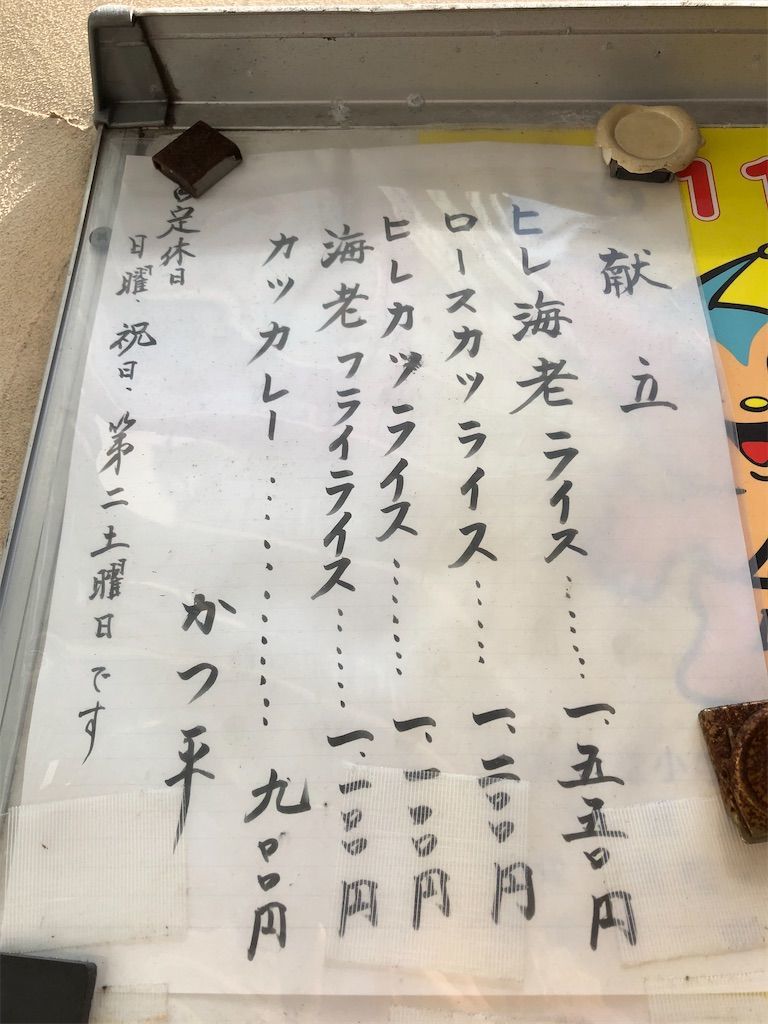 献立
ヒレ海老ライス……一、五五〇円
ロースカツライス……一、二〇〇円
ヒレカツライス……一、一〇〇円
海老フライライス……一、一〇〇円
カツカレー……九〇〇円
かつ平
定休日
日曜、祝日、第二土曜日です
11